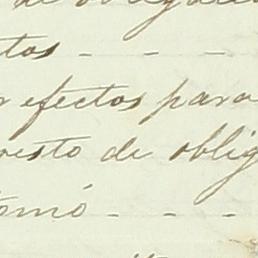 de obligacio
tos - - -
r efectos para
uesto de oblig
tomó - - -